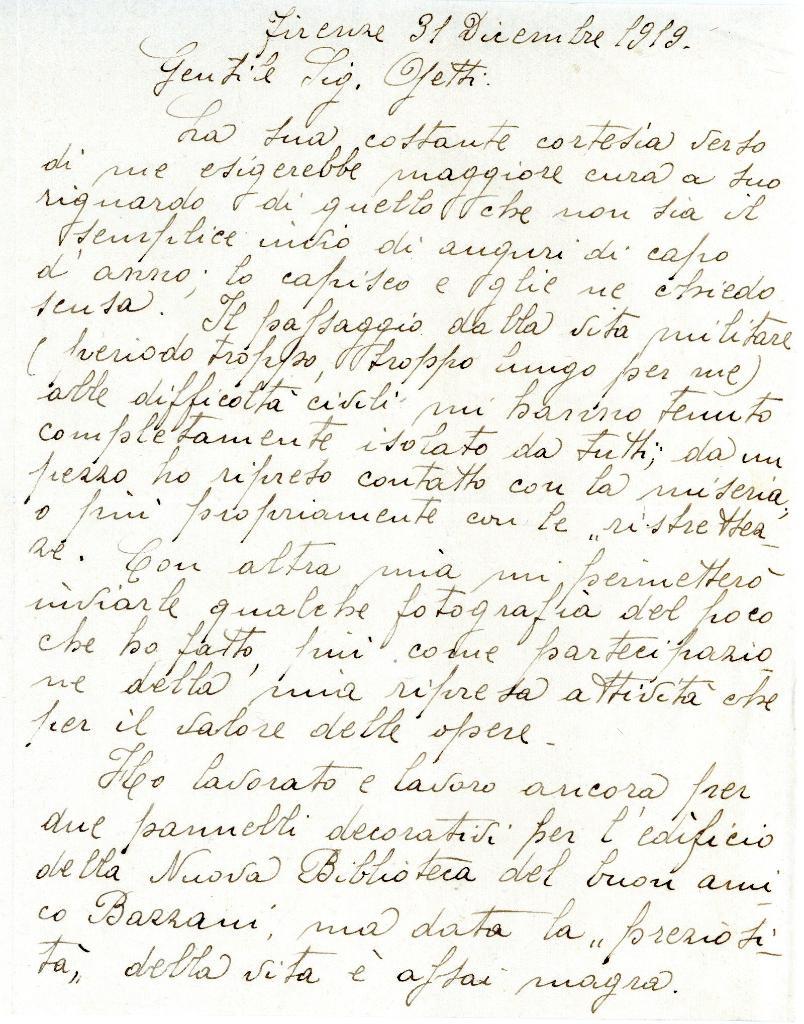 Firenze 31 Dicembre 1919.
Gentile Sig. Ojetti.
La sua costante cortesia verso
di me esigerebbe maggiore cura a suo
riguardo di quello che non sia il
semplice invio di auguri di capo
d'anno; lo capisco e glie ne chiedo
scusa. Il passaggio dalla vita militare
(periodo troppo, troppo lungo per me)
alle difficoltà civili mi hanno tenuto
completamente isolato da tutti; da un
pezzo ho ripreso contatto con la miseria,
o più propriamente con le „ristrettez-
ze. Con altra mia mi permetterò
inviarle qualche fotografia del poco
che ho fatto, più come partecipazio-
ne della mia ripresa attività che
per il valore delle opere.
Ho lavorato e lavoro ancora per
due pannelli decorativi per l'edificio
della Nuova Biblioteca del buon ami-
co Bazzani, ma data la „preziosi-
tà„ della vita è assai magra.